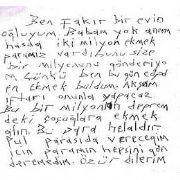 Ben Fakir bir evin
oğluyum. Babam yok annem
hasda iki milyon ekmek
paramız vardı bunu size
bir milyonunu gönderiyo
m Çünkü ben bu gün eçıd
en ekmek buldum. Akşam
iftarı onunla yapacaz
Bu bir milyonlan deprem
deki çocuğlara ekmek
alın. Bu para helaldır
Pul parasıda vereceğim
için paramın hepsini gön
daremedim. özür dilerim